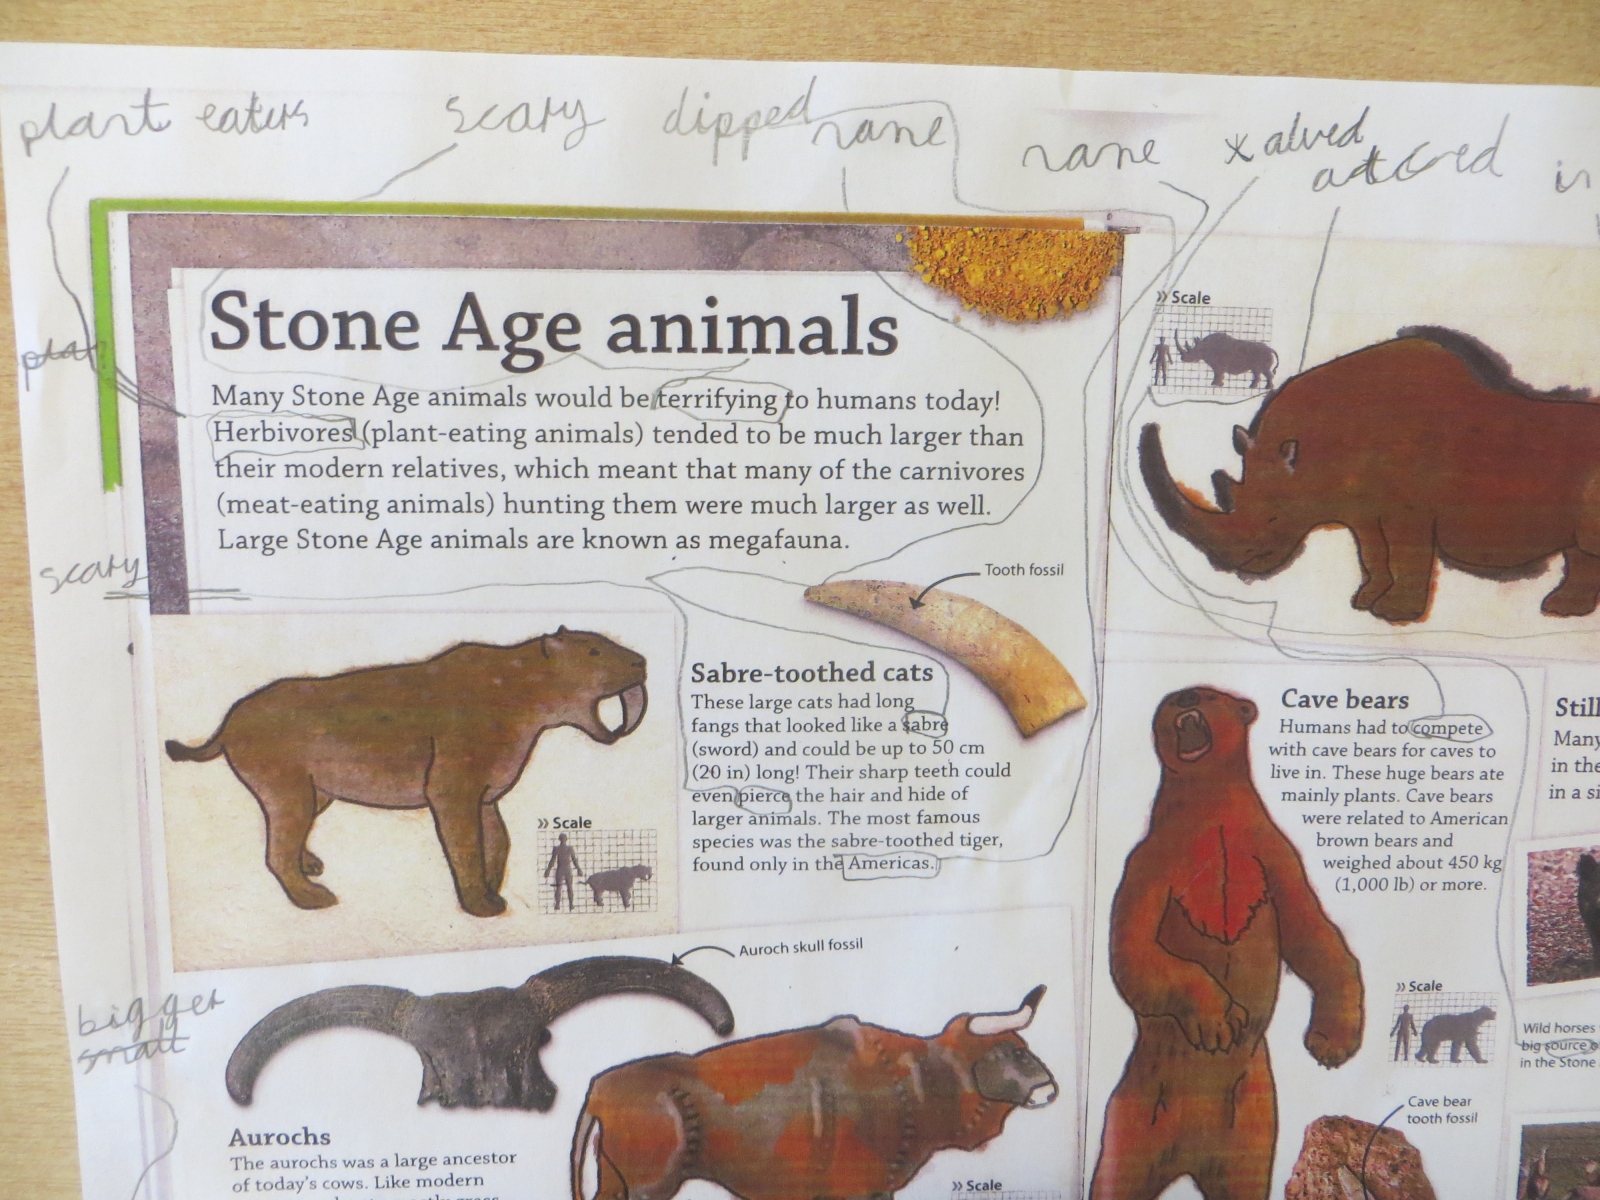 plant eaters
scary
dipped
name
name
x alved
in
plan
scary
bigger
small
Stone Age animals
Many Stone Age animals would be terrifying to humans today!
Herbivores (plant-eating animals) tended to be much larger than
their modern relatives, which meant that many of the carnivores
(meat-eating animals) hunting them were much larger as well.
Large Stone Age animals are known as megafauna.
Tooth fossil
Sabre-toothed cats
These large cats had long
fangs that looked like a sabre
(sword) and could be up to 50 cm
(20 in) long! Their sharp teeth could
even pierce the hair and hide of
larger animals. The most famous
species was the sabre-toothed tiger,
found only in the Americas.
» Scale
Auroch skull fossil
Aurochs
The aurochs was a large ancestor
of today's cows. Like modern
» Scale
» Scale
Cave bears
Humans had to compete
with cave bears for caves to
live in. These huge bears ate
mainly plants. Cave bears
were related to American
brown bears and
weighed about 450 kg
(1,000 lb) or more.
» Scale
Cave bear
tooth fossil
Still
Many
in the
in a si
Wild horses
big source o
in the Stone